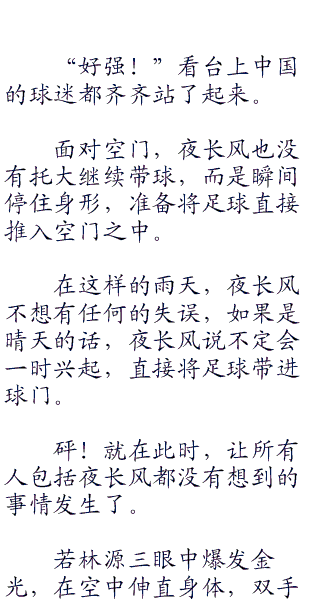 “好强！”看台上中国
的球迷都齐齐站了起来。
面对空门，夜长风也没
有托大继续带球，而是瞬间
停住身形，准备将足球直接
推入空门之中。
在这样的雨天，夜长风
不想有任何的失误，如果是
晴天的话，夜长风说不定会
一时兴起，直接将足球带进
球门。
砰！就在此时，让所有
人包括夜长风都没有想到的
事情发生了。
若林源三眼中爆发金
光，在空中伸直身体，双手